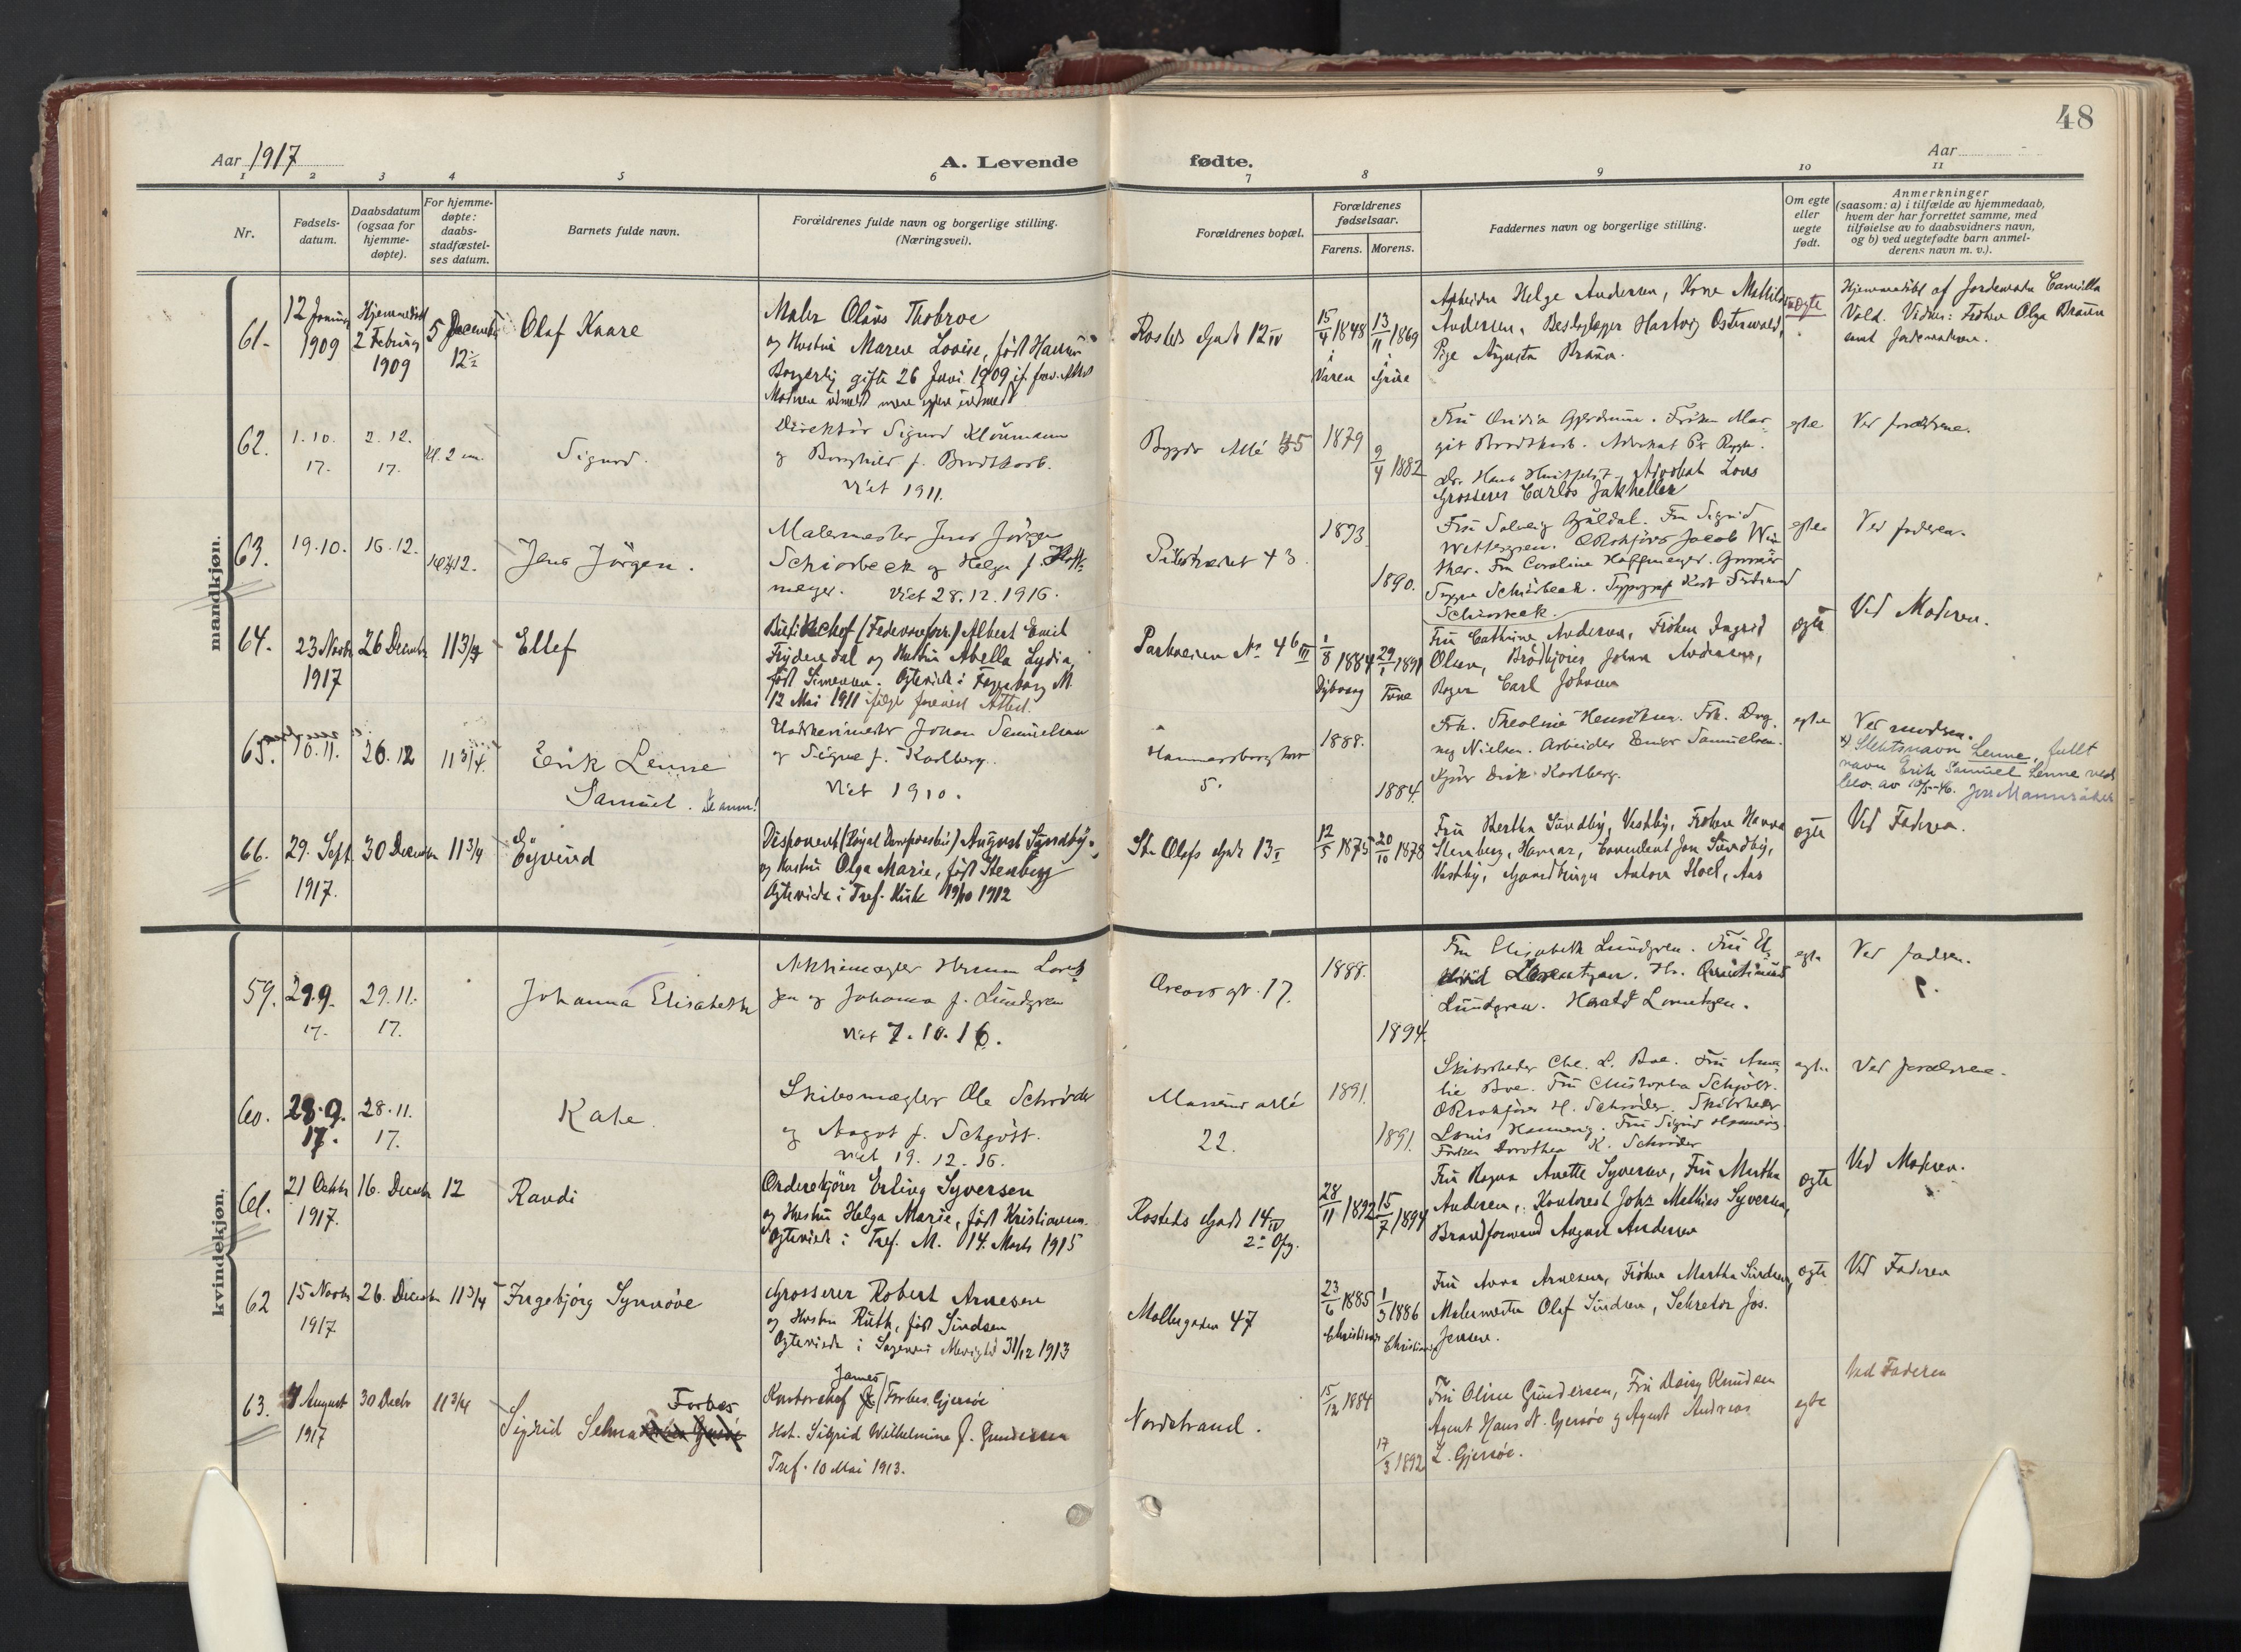 48
Aar 1917
A. Levende
fødte.
Aar
1 2 3 4 5 6 7 8 9 10 11
Nr.
Fødsels-
datum.
Daabsdatum
(ogsaa for
hjemme-
døpte).
For hjemme-
døpte:
daabs-
stadfæstel-
ses datum.
Barnets fulde navn.
Forældrenes fulde navn og borgerlige stilling.
(Næringsvei).
Forældrenes bopæl.
Forældrenes
fødselsaar.
Farens. Morens.
Faddernes navn og borgerlige stilling.
Om egte
eller
uegte
født.
Anmerkninger
(saasom: a) i tilfælde av hjemmedaab,
hvem der har forrettet samme, med
tilføielse av to daabsvidners navn,
og b) ved uegtefødte barn anmel-
derens navn m. v.).
mandkjøn.
61.
12 Januar
1909
Hjemmedøbt
2 Februar
1909
5 December
12
Olaf Kaare
Maler Olaus Thobroe
og Hustru Maren Lovise, født
Borgerlig gifte 26 Juni 1909
Rosteds Gade 12 IV
15/4 1848
13/11 1869
i
i
Varen
Grue
Arbeider Helge Andersen, Kone Mathilde
Andersen, Beslaglæger Hartvig Osterwald,
Pige Augusta Braaen.
uægte
Hjemmedøbt af Jordemoder Camilla
Vold. Vidner: Frøken Olga Braaen
samt Jordemoderen.
62.
1.10.
17.
2.12.
17.
Kl. 2 em.
Sigurd.
Direktør Sigurd Kloumann
og Borghild f. Brodtkorb.
Viet 1911.
Bygdø Allé 45
1879
9/4 1882
Fru Ovidia Gjerdrum. Frøken Mar-
git Brodtkorb. Advokat Per Rygh.
Advokat Lous
Grosserer Carlos Jakhelln
egte
Ved forældrene.
63.
19.10.
16.12.
Jens Jörgen.
Malermester Jens Jörgen
Schiørbeck og Helga f. Hoff-
meyer. Viet 28.12.1916.
Pilestrædet 43
1893
1890.
Fru Solveig Guldal. Fru Sigrid
Wettergren. Jacob Win-
ther. Fru Caroline Hoffmeyer.
Schiørbeck. Typograf
Schiørbeck.
egte
Ved faderen.
64.
23 Novbr
1917
26 Decembr
11 3/4
Ellef
Albert Emil
Frydendal og Hustru Abella Lydia,
født Simensen. Ægteviede i
12 Mai 1911 ifølge forevist Attest.
Parkveien No 46 III
1/8 1884
29/1 1891
Dybvaag
Tune
Fru Cathrine Andersen, Frøken Ingrid
Olsen, Brødkjører Johan Andersen,
Bager Carl Johnsen
ægte
Ved Moderen.
65.
10.11.
26.12
11 3/4.
Erik Lenne
Samuel. Se anm!
Johan Samuelsen
og Signe f. Karlberg.
Viet 1910.
Hammersborg torv
5.
1888.
1884.
Frk. Theoline Henriksen. Frk. Dag-
ny Nielsen. Arbeider Einar Samuelsen.
Erik Karlberg.
egte
Ved moderen.
x) Slektsnavn Lenne, fullt
navn Erik Samuel Lenne ved
bev. av 10/5-46. Jens Mannsåker
66.
29. Sept
1917.
30 December
11 3/4
Eyvind
Disponent August Sundby.
og Hustru Olga Marie, født Stenberg
Ægteviede i Tref. Kirke 19/10 1912
St. Olafs Gade 13 I
12/5 1875
20/10 1878
Fru Bertha Sundby, Vestby, Frøken Hanna
Stenberg, Hamar, Jon Sundby,
Vestby, Gaardbruger Anton Hoel, Aas
ægte
Ved Faderen.
kvindekjøn.
59.
29.9.
17.
29.11.
17.
Johanna Elisabeth
Aktiemægler Herman Lorent-
zen og Johanna f. Lundgren
Viet 7.10.16.
Oscars gt. 17.
1888.
1894.
Fru Elisabeth Lundgren. Fru
Lorentzen. Hr.
Lundgren. Harald Lorentzen.
egte
Ved faderen.
60.
28.9.
17.
28.11.
17.
Kate.
Skibsmægler Ole Schrøder
og Aagot f. Schjøtt.
Viet 19.12.16.
Monrads allé
22.
1891.
1891.
Skibsrheder Chr. L. Boe. Fru Ama-
lie Boe. Fru Christopha Schjøtt.
H. Schrøder. Skibsrheder
Louis Hannevig. Fru Sigrid Hannevig
Frøken Dorothea K. Schrøder
egte
Ved forældrene.
61.
21 Octbr
1917.
16. Decembr
12
Randi
Ordrekjører Erling Syversen
og Hustru Helga Marie, født Kristiansen.
Ægteviede i Tref. M. 14. Marts 1915
Rosteds Gade 14 IV
2den Opg.
28/11 1892
15/7 1894
Fru Hagna Anette Syversen, Fru Martha
Andersen, Kontorist Johs Mathias Syversen,
Brandformand August Andersen
ægte
Ved Moderen.
62
15 Novbr
1917
26. Decembr
11 3/4
Ingebjørg Synnøve
Grosserer Robert Arnesen
og Hustru Ruth, født Sindsen
Ægteviede i Sagenes Menighed 31/12 1913
Møllergaden 47
23/6 1885
1/3 1886
Christiania
Christiania
Fru Anna Arnesen, Frøken Martha Sindsen,
Malermester Olaf Sindsen, Sekretær Jos.
Jensen.
ægte
Ved Faderen
63.
4 August
1917
30 Decbr
11 3/4
Forbes
Sigrid Selma
James
Kontorchef Forbes Gjersøe
Hst. Sigrid Wilhelmine f. Gundersen
Tref. 10 Mai 1913.
Nordstrand.
15/12 1884
17/3 1892
Fru Oline Gundersen, Fru Daisy Knudsen
Agent Hans N. Gjersøe og Agent Andreas
L. Gjersøe.
egte
Ved Faderen